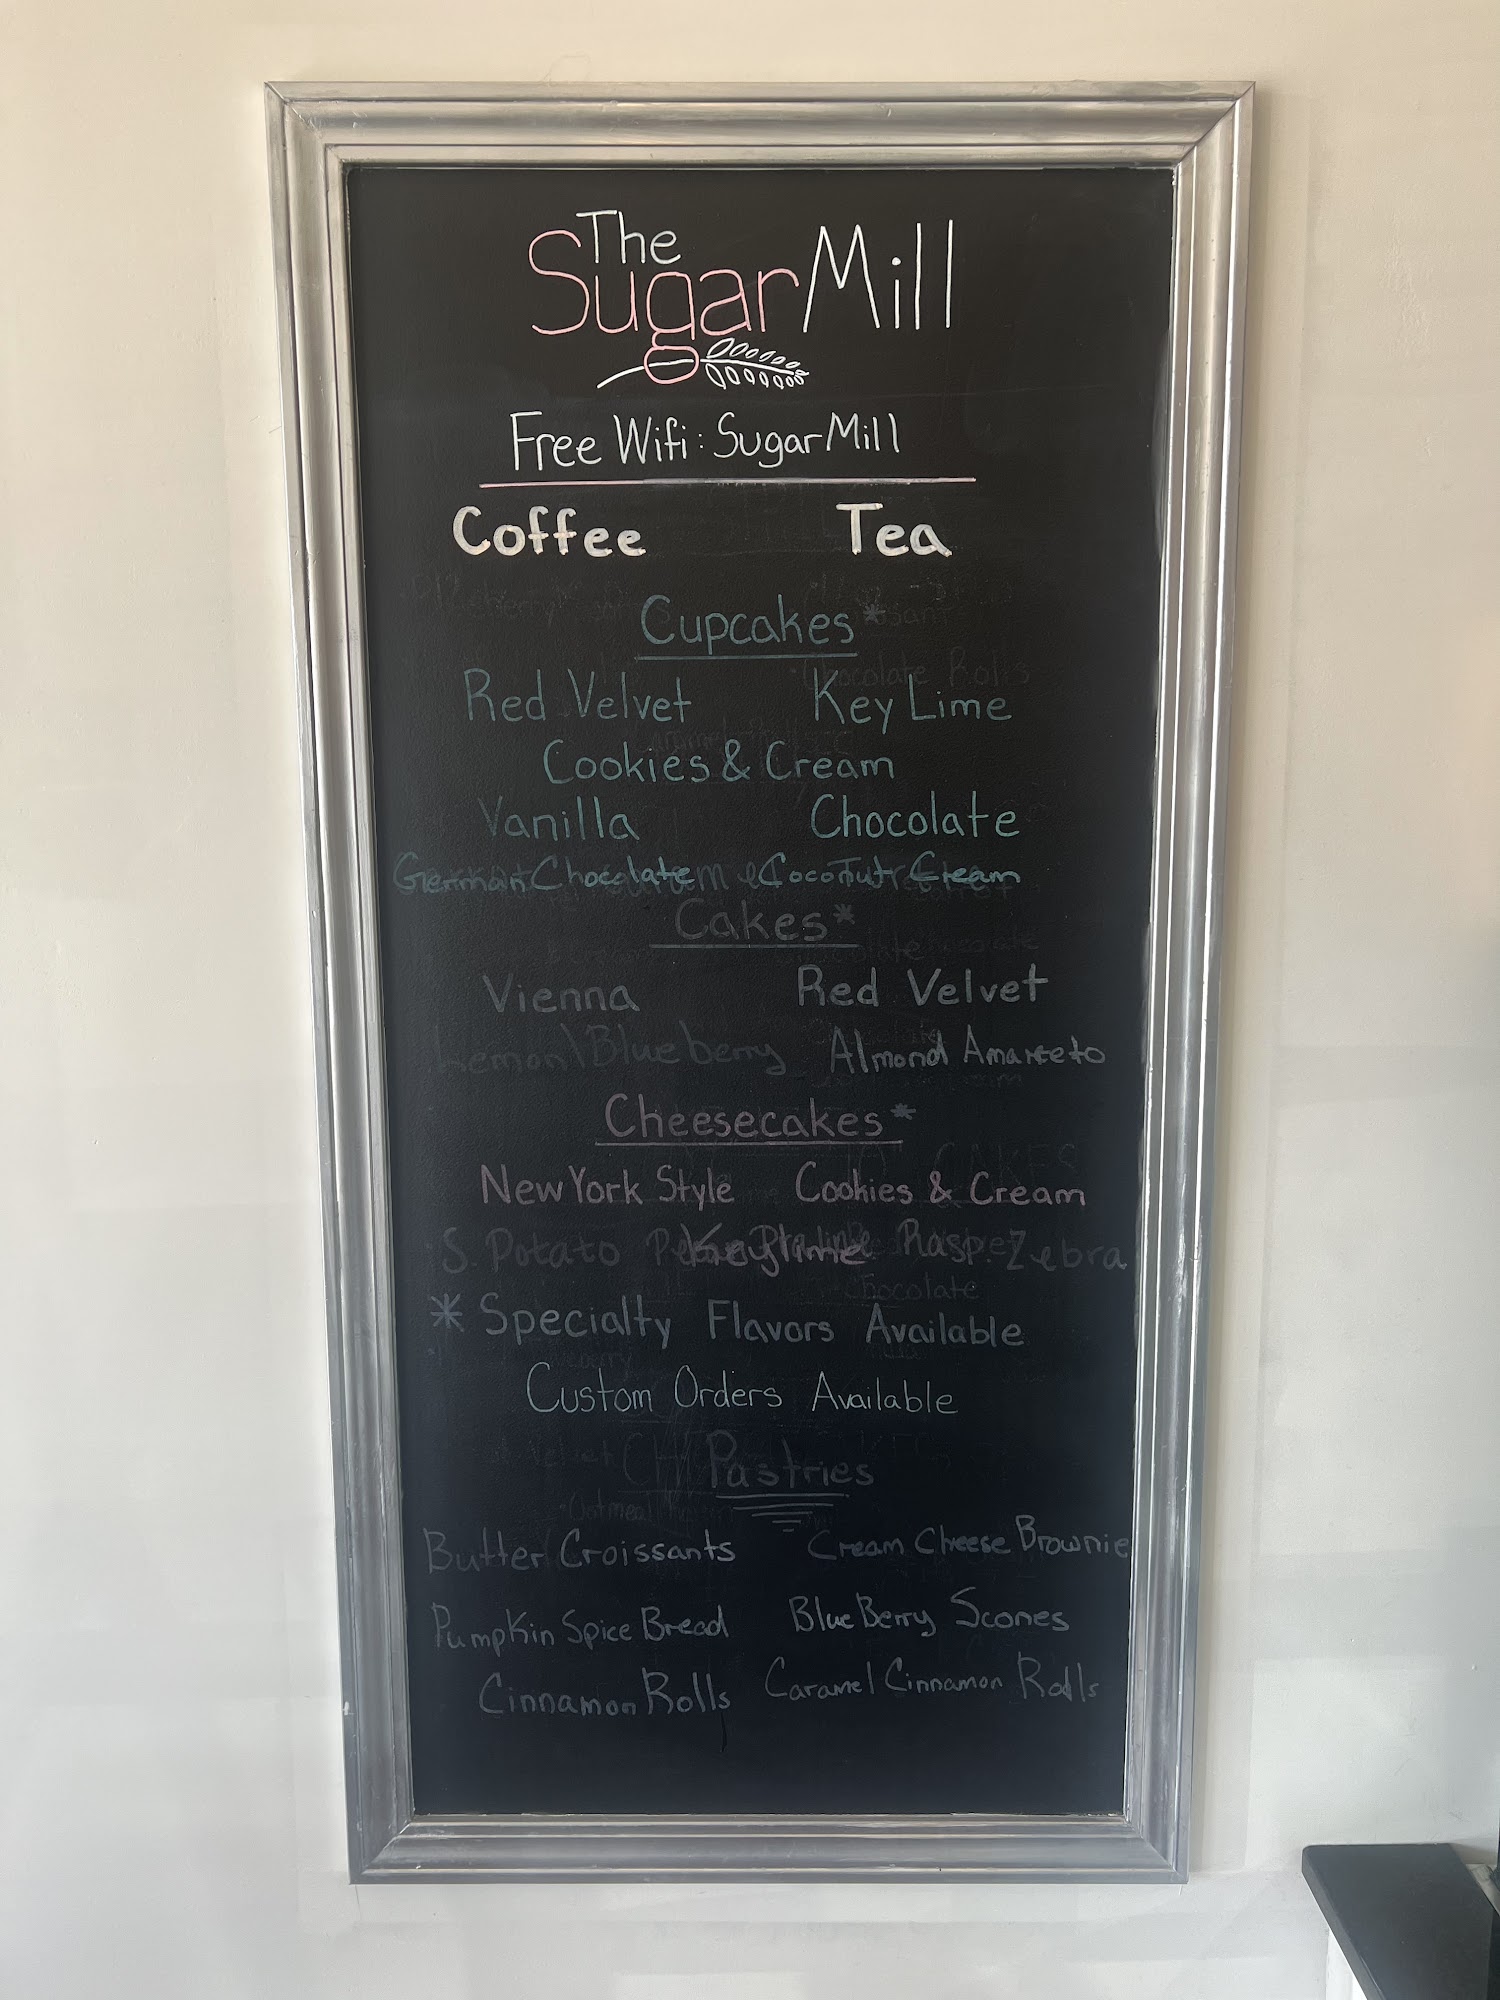 The
Sugar Mill
Free Wifi: SugarMill
Coffee Tea
Cupcakes*
Red Velvet Key Lime
Cookies & Cream
Vanilla Chocolate
German Chocolate Coconut Cream
Cakes*
Vienna Red Velvet
Lemon Blueberry Almond Amareto
Cheesecakes*
New York Style Cookies & Cream
S. Potato Key Lime Rasp. Zebra
* Specialty Flavors Available
Custom Orders Available
Pastries
Butter Croissants Cream Cheese Brownie
Pumpkin Spice Bread BlueBerry Scones
Cinnamon Rolls Caramel Cinnamon Rolls